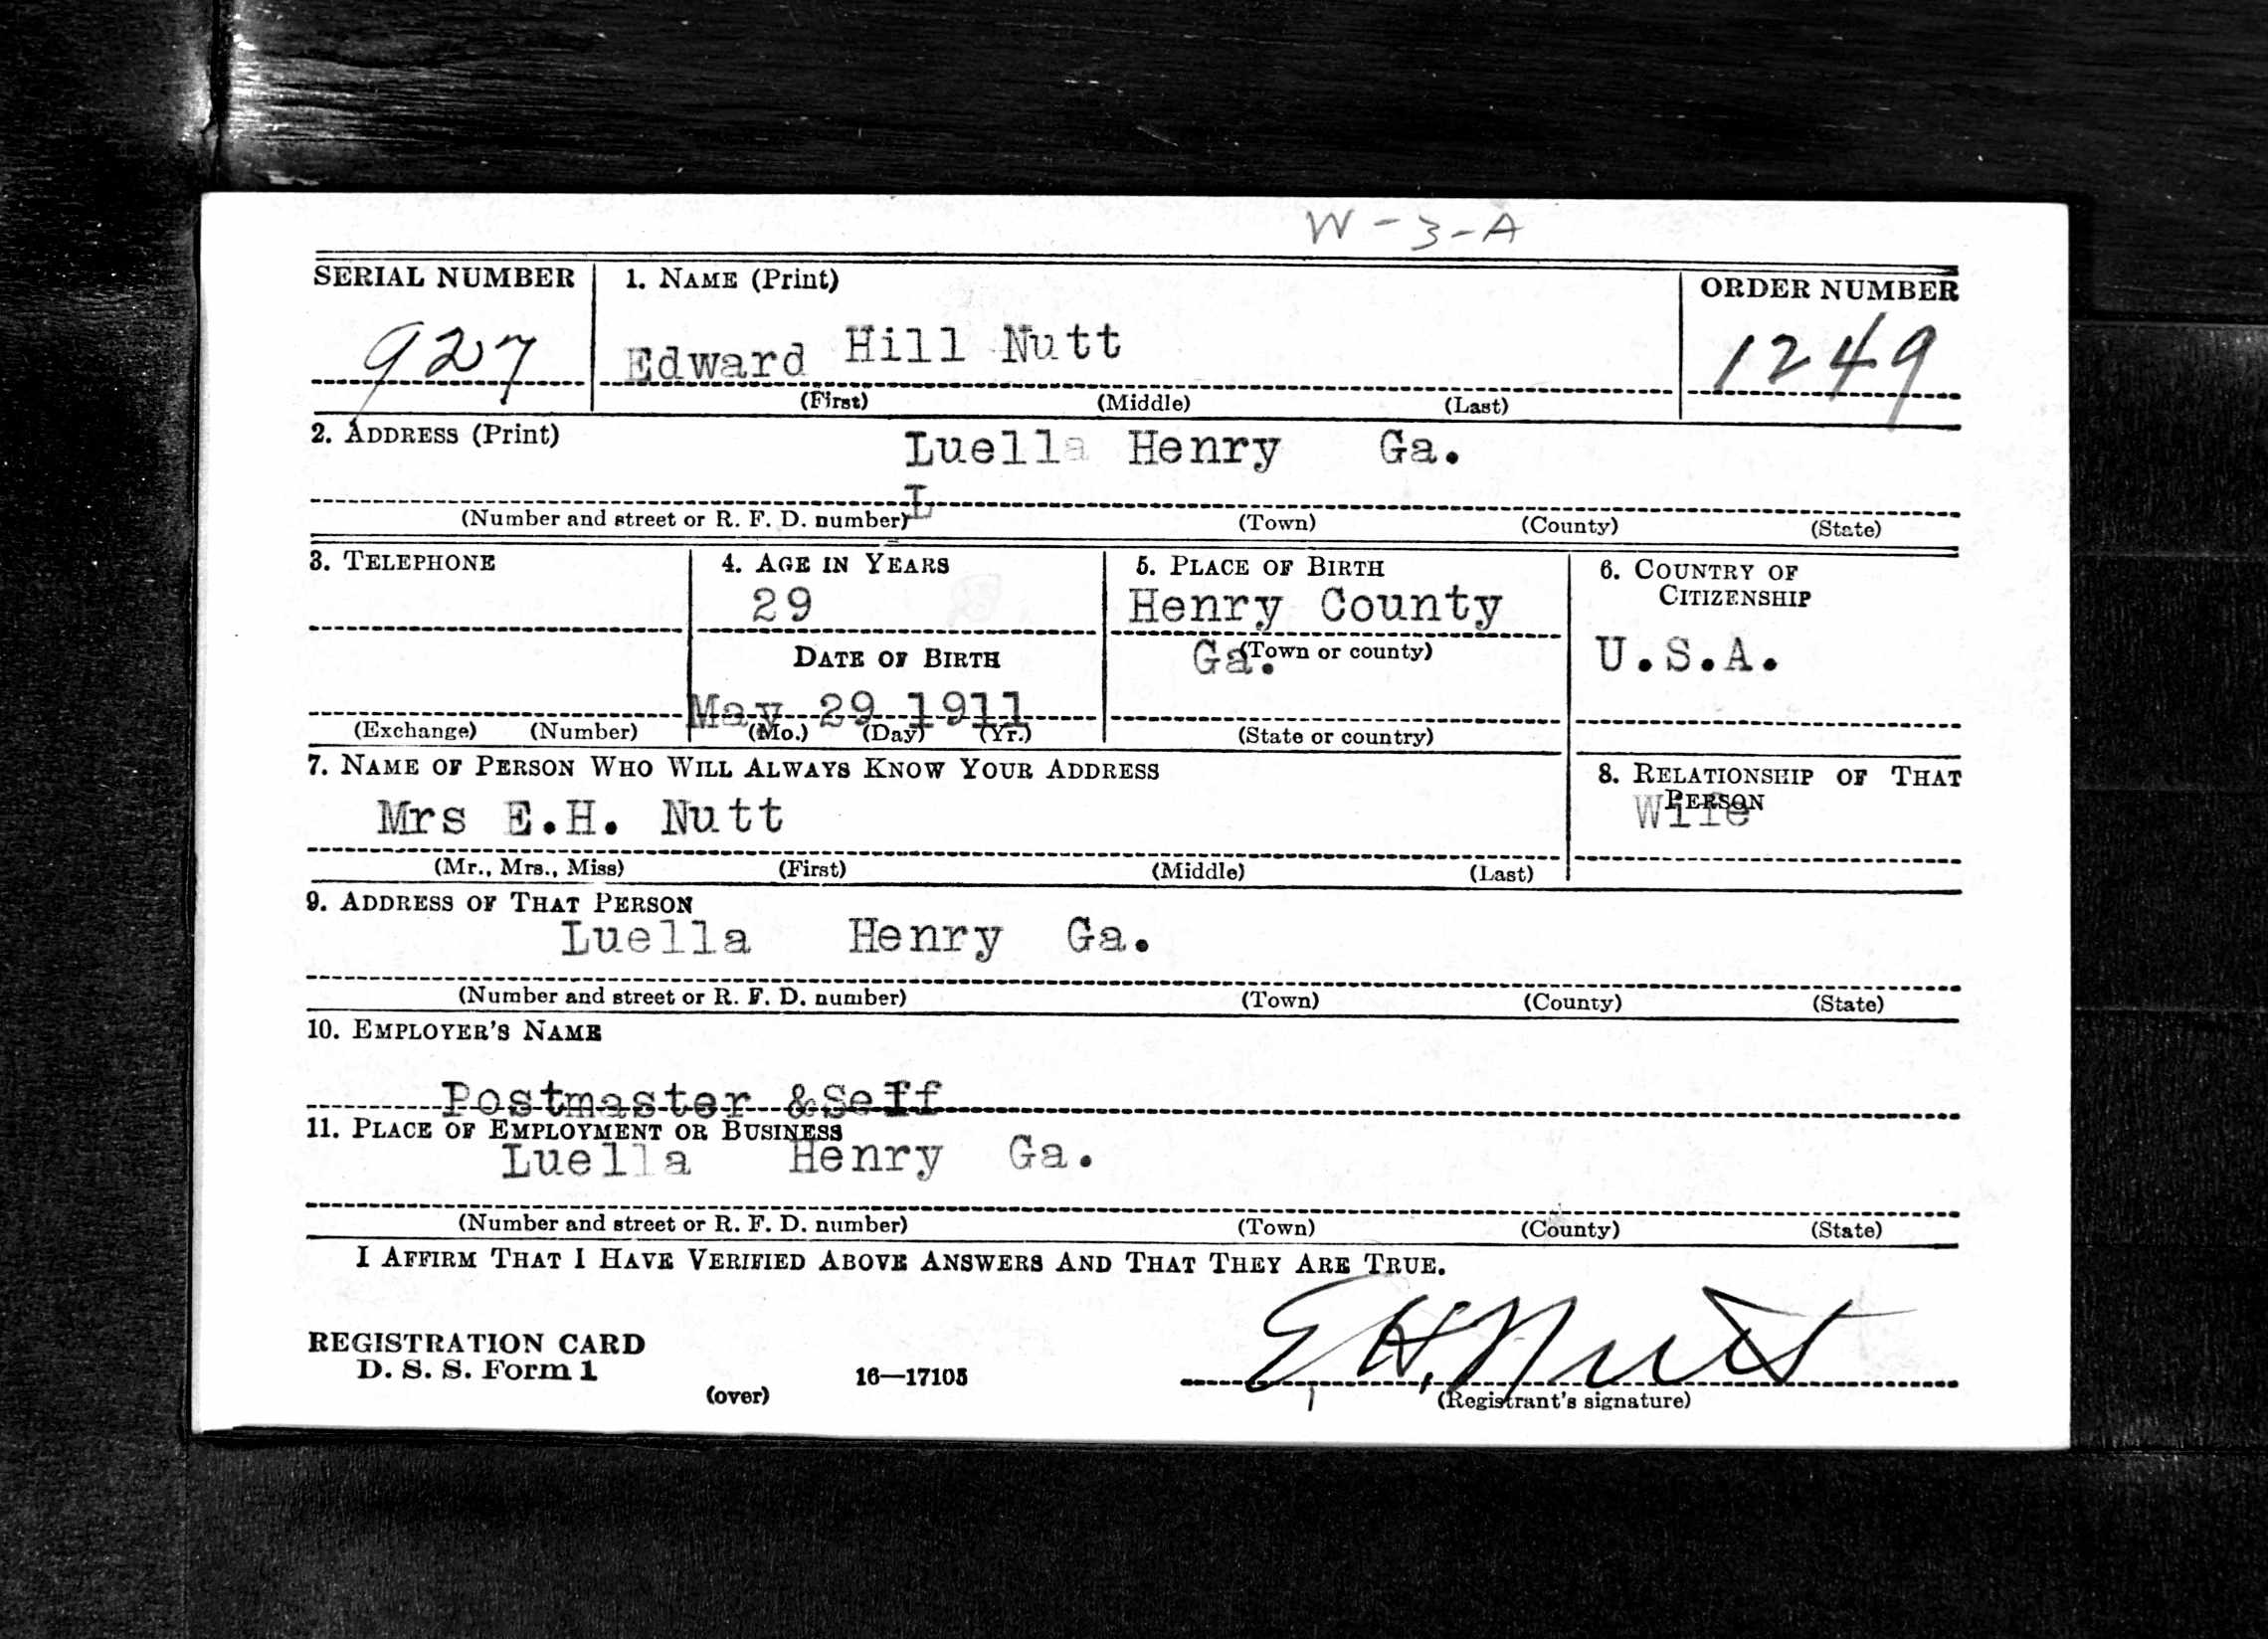 W-3-A
SERIAL NUMBER 1. NAME (Print) ORDER NUMBER
927 Edward Hill Nutt 1249
(First) (Middle) (Last)
2. ADDRESS (Print)
Luella Henry Ga.
L
(Number and street or R. F. D. number) (Town) (County) (State)
3. TELEPHONE 4. AGE IN YEARS 5. PLACE OF BIRTH 6. COUNTRY OF CITIZENSHIP
29 Henry County
DATE OF BIRTH Ga. (Town or county) U.S.A.
May 29 1911
(Exchange) (Number) (Mo.) (Day) (Yr.) (State or country)
7. NAME OF PERSON WHO WILL ALWAYS KNOW YOUR ADDRESS 8. RELATIONSHIP OF THAT PERSON
Mrs E.H. Nutt Wife
(Mr., Mrs., Miss) (First) (Middle) (Last)
9. ADDRESS OF THAT PERSON
Luella Henry Ga.
(Number and street or R. F. D. number) (Town) (County) (State)
10. EMPLOYER'S NAME
Postmaster &Self
11. PLACE OF EMPLOYMENT OR BUSINESS
Luella Henry Ga.
(Number and street or R. F. D. number) (Town) (County) (State)
I AFFIRM THAT I HAVE VERIFIED ABOVE ANSWERS AND THAT THEY ARE TRUE.
E H. Nutt
REGISTRATION CARD
D. S. S. Form 1
(over) 16—17105 (Registrant's signature)